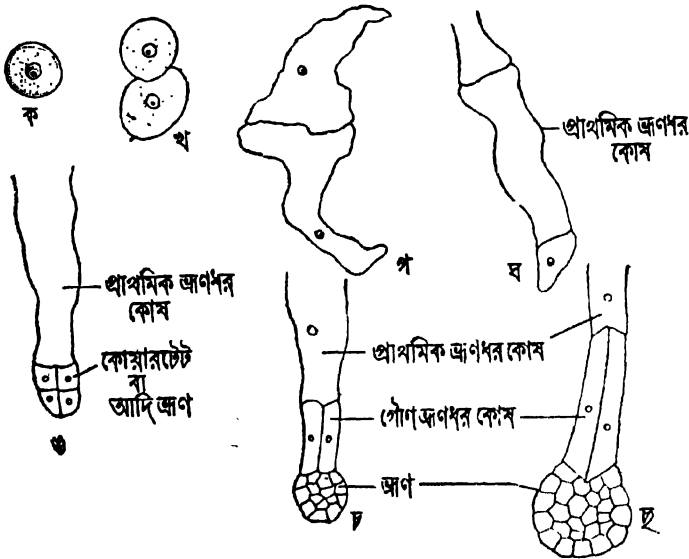 ক
খ
গ
ঘ
প্রাথমিক ভ্রূণধর
কোষ
প্রাথমিক ভ্রূণধর
কোষ
কোয়ারটেট
বা
আদি ভ্রূণ
ঙ
প্রাথমিক ভ্রূণধর কোষ
গৌণ ভ্রূণধর কোষ
ভ্রূণ
চ
ছ